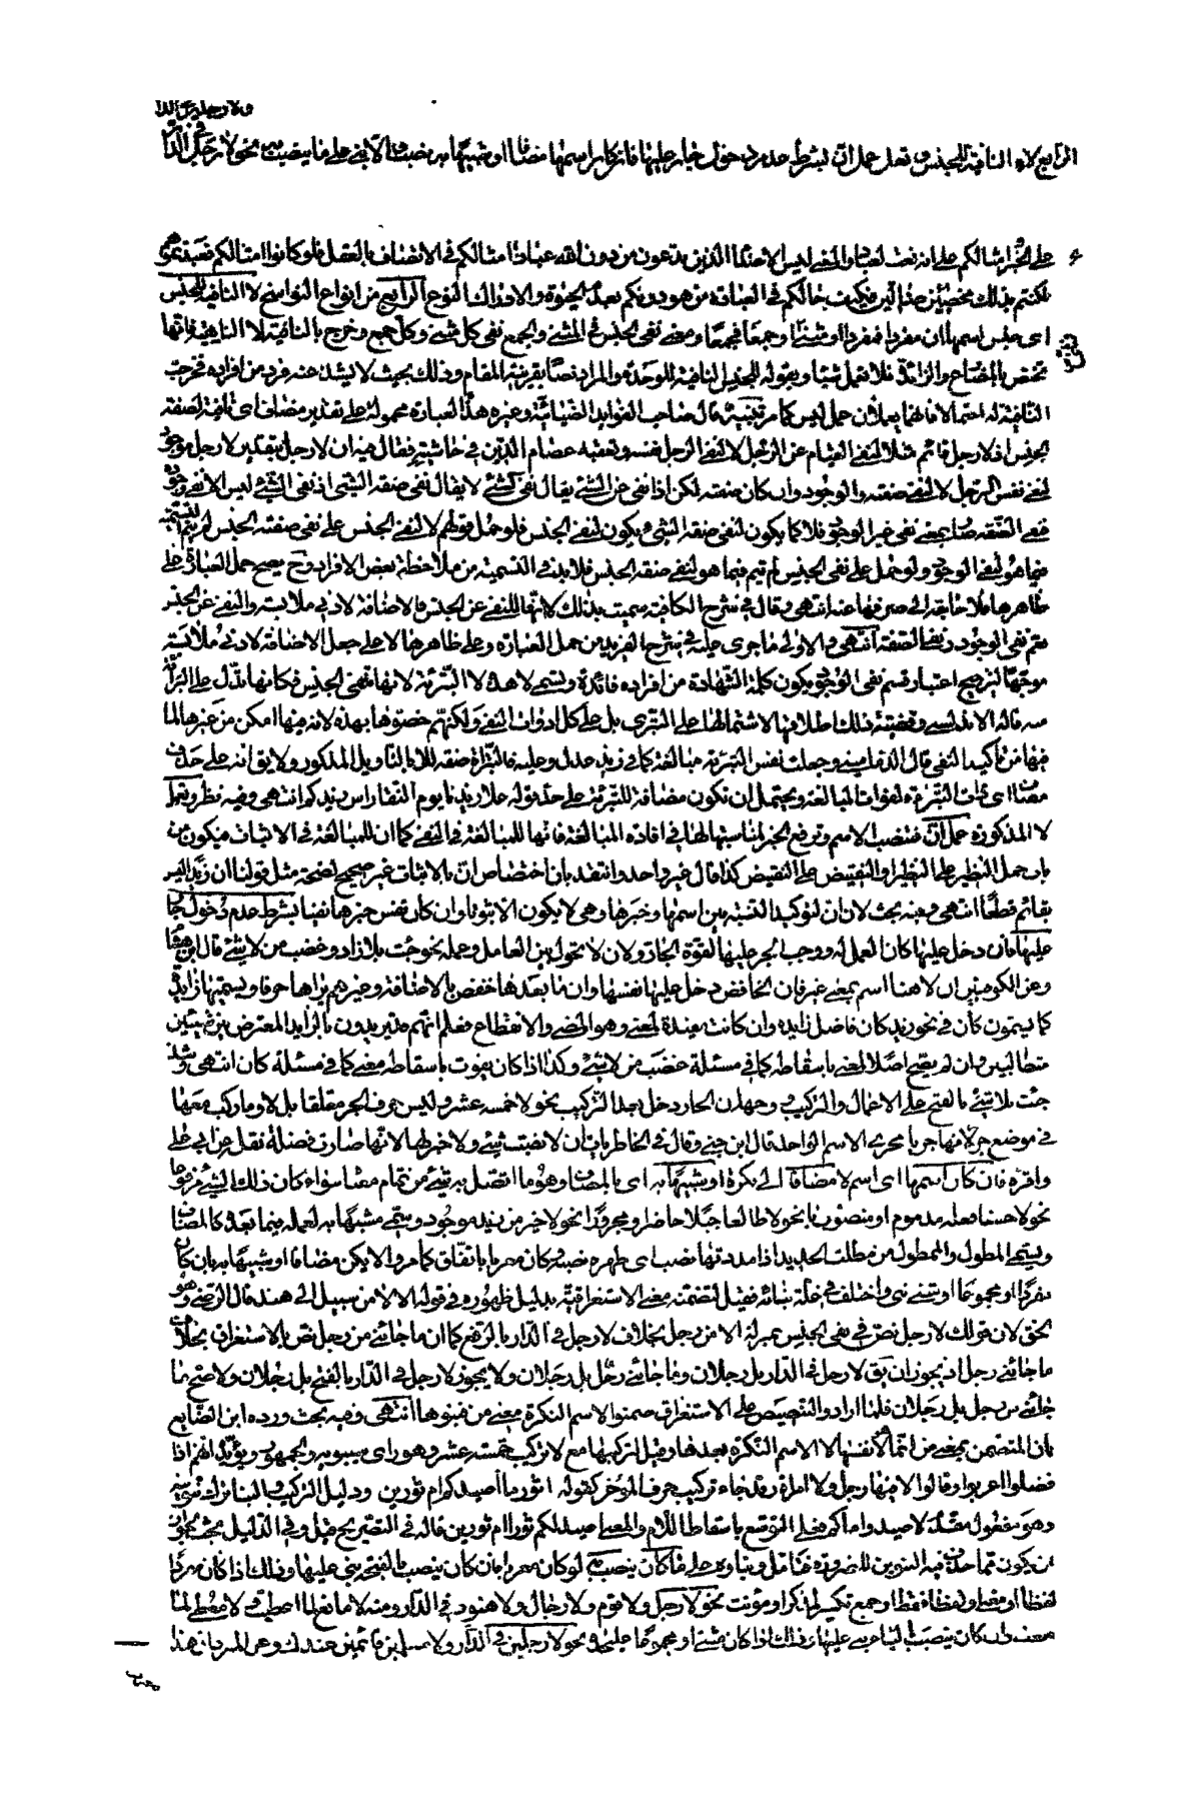 ولا رجلين في الدار
الرابع لاء النافية للجنس وتعمل عمل ان بشرط عدم دخول جار عليها فان كان اسمها مضافا او شبيها به نصب والا بني على ما ينصب به نحو لا رجل في الدار
على الخبر امثالكم على انه نعت لعبادا والمعنى ليس الاصنام الذين تدعون من دون الله عبادا امثالكم في الاتصاف بالعقل فلو كانوا امثالكم فعبدتموهم
لكنتم بذلك مخطئين ضالين فكيف حالكم في العبادة من هو دونكم بعدم الحيوة والادراك النوع الرابع من انواع النواسخ لا النافية للجنس
اى جنس اسمها ان مفردا فمفردا او مثنى وجمعا فجمعا ومعنى نفى الجنس في المثنى والجمع نفى كل مثنى وكل جمع وخرج بالنافية لا الناهية فانها
تختص بالمضارع والزائدة فلا تعمل شيئا وبقوله للجنس النافية للوحدة والمراد نصا بقرينة المقام وذلك بحيث لا يشذ عنه فرد من افراده فخرجت
النافية له احتمالا فانها يعملان عمل ليس كما مر تنبيه قال صاحب الفوايد الضيائية وغيره هذه العبارة محمولة على تقدير مضاف اى نافية لصفة
الجنس اذ لا رجل قائم مثلا لنفى القيام عن الرجل لا لنفى الرجل نفسه وتعقبه عصام الدين في حاشيته فقال فيه ان لا رجل بتقدير لا رجل موجود
لنفى نفس الرجل لا لنفى صفته والوجود وان كان صفته لكن اذا نفى عن الشئ يقال نفى الشئ لا يقال نفى صفة الشئ اذ نفى الشئ ليس الا نفى وجوده
فنفى الصفة صار بمعنى نفى غير الوجود فلا كما يكون لنفى صفة الشئ يكون لنفى الجنس فلو حمل قولهم لا لنفى الجنس على نفى صفة الجنس لم يتم التسمية
فيما هو لنفى الوجود ولو حمل على نفى الجنس لم يتم فيما هو لنفى صفة الجنس فلا بد في التسمية من ملاحظة بعض الافراد وح يصح حمل العبارة على
ظاهرها فلا حاجة الى صرفها عنه انتهى وقال في شرح الكافية سميت بذلك لانها للنفى عن الجنس فالاضافة لادنى ملابسة والنفى عن الجنس
يعم نفى الوجود ونفى الصفة انتهى والاولى ما جرى عليه في شرح الفريد من حمل العبارة على ظاهرها لا على جعل الاضافة لادنى ملابسة
موجها لترجيح اعتبار قسم نفى الوجود بكون كلمة الشهادة من افراده فائدة وتسمى لا هذه لا التبرئة لانها تنفى الجنس فكانها تدل على البراءة
منه قاله الاندلسى وقضية ذلك اطلاقها لاشتمالها على التبرى بل على كل ادوات النفى ولكنهم خصوها بهذه لانه فيها امكن من غيرها لما
فيها من تاكيد النفى قال الدمامينى وجعلت نفس التبرئة مبالغة كما في زيد عدل وعليه فالتبرئة صفة للا بالتاويل المذكور ولا يق انه على حذف
مضاف اى ذات التبرئة لفوات المبالغة ويحتمل ان تكون مضافة للتبرئة على حد قوله علا زيدنا يوم النقا راس زيدكم انتهى وفيه نظر وتعمل
لا المذكورة عمل ان فتنصب الاسم وترفع الخبر لمناسبتها لها في افادة المبالغة فانها للمبالغة في النفى كما ان للمبالغة في الاثبات فيكون من
باب حمل النظير على النظير او النقيض على النقيض كذا قال غير واحد وانتقد بان اختصاص ان بالاثبات غير صحيح لصحة مثل قولنا ان زيدا ليس
بقائم قطعا انتهى وفيه بحث لان ان لتوكيد النسبة بين اسمها وخبرها وهى لا يكون الا ثبوتا وان كان نفس خبرها نفيا بشرط عدم دخول جار
عليها فان دخل عليها كان العمل له ووجب الجر عليها لقوة الجار ولان لا تحول بين العامل وعمله نحو جئت بلا زاد وغضبت من لا شئ قال ابن هشام
وعن الكوفيين ان لا هنا اسم بمعنى غير فان الخافض دخل عليها نفسها وان ما بعدها خفض بالاضافة وغيرهم يراها حرفا ويسميها زائدة
كما يسمون كان في نحو زيد كان فاضل زايدة وان كانت مفيدة لمعنى وهو المضى والانقطاع فعلم انهم قد يريدون بالزايد المعترض بين شيئين
متطالبين وان لم يصح اصل المعنى باسقاطه كما في مسئلة غضبت من لا شئ وكذا اذا كان يفوت باسقاطه معنى كما في مسئلة كان انتهى وشذ
جئت بلا شئ بالفتح على الاعمال والتركيب ووجهه ان الجار دخل بعد التركيب نحو لا خمسة عشر وليس حرف الجر معلقا بل لا وما ركب معها
في موضع جر لانها جريا مجرى الاسم الواحد قاله ابن جنى وقال في الخاطريات ان لا نصبت شئ ولا خبر لها لانها صارت فضلة نقله عن ابى على
واقره فان كان اسمها اى اسم لا مضافا الى نكرة او شبيها به اى بالمضاف وهو ما اتصل به شئ من تمام معناه سواء كان ذلك الشئ مرفوعا
نحو لا حسنا فعله مذموم او منصوبا به نحو لا طالعا جبلا حاضر او مجرورا نحو لا خير من زيد موجود ويسمى مشبها به لعمله فيما بعده كالمضاف
ويسمى المطول والممطول من مطلت الحديد اذا مددتها نصب اى ظهر نصبه وكان معربا باتفاق كما مر والا يكن مضافا او شبيها به بان كان
مفردا او مجموعا او مثنى بنى واختلف في علة بنائه فقيل لتضمنه معنى من الاستغراقية بدليل ظهورها في قوله الا لا من سبيل الى هند قال الرضى وهو
الحق لان قولك لا رجل نص في نفى الجنس بمنزلة لا من رجل بخلاف لا رجل في الدار بالرفع كما ان ما جائنى من رجل نص بالاستغراق بخلاف
ما جائنى رجل اذ يجوز ان يق لا رجل في الدار بل رجلان وما جائنى رجل بل رجلان ولا يجوز لا رجل في الدار بالفتح بل رجلان ولا يصح ما
جائنى من رجل بل رجلان فلما ارادوا التنصيص على الاستغراق ضمنوا الاسم النكرة معنى من فبنوها انتهى وفيه بحث ورده ابن الضايع
بان المتضمن بمعنى من انما لا نفسها لا الاسم النكرة بعدها وقيل لتركبها مع لا تركيب خمسة عشر وهو راى سيبويه والجمهور ويؤيده انهم اذا
فصلوا اعربوا وقالوا لا فيها رجل ولا امراة وقد جاء تركيب حرف المؤخر كقوله اثور ما اصيدكم ام ثورين ودليل التركيب والبناء ترك تنوينه
وهو مفعول مقدم لاصيد واما كم فعلى التوسع باسقاط اللام والمعنى اصيد لكم ثورا ام ثورين قاله في التصريح قيل وفي الدليل بحث لجواز
ان يكون مما حذف فيه التنوين للضرورة فتامل وبناؤه على ما كان ينصب به لو كان معربا بان كان ينصب بالفتحة بنى عليها وذلك اذا كان مفردا
لفظا او معنى او لفظا فقط او جمع تكسير لمذكر او مؤنث نحو لا رجل ولا قوم ولا رجال ولا هنود في الدار ومنه لا مانع لما اعطيت ولا معطى لما
منعت وان كان ينصب بالياء بنى عليها وذلك اذا كان مثنى او مجموعا على حده نحو لا رجلين في الدار ولا مسلمين قائمين عندك وعن المبرد ان هذا